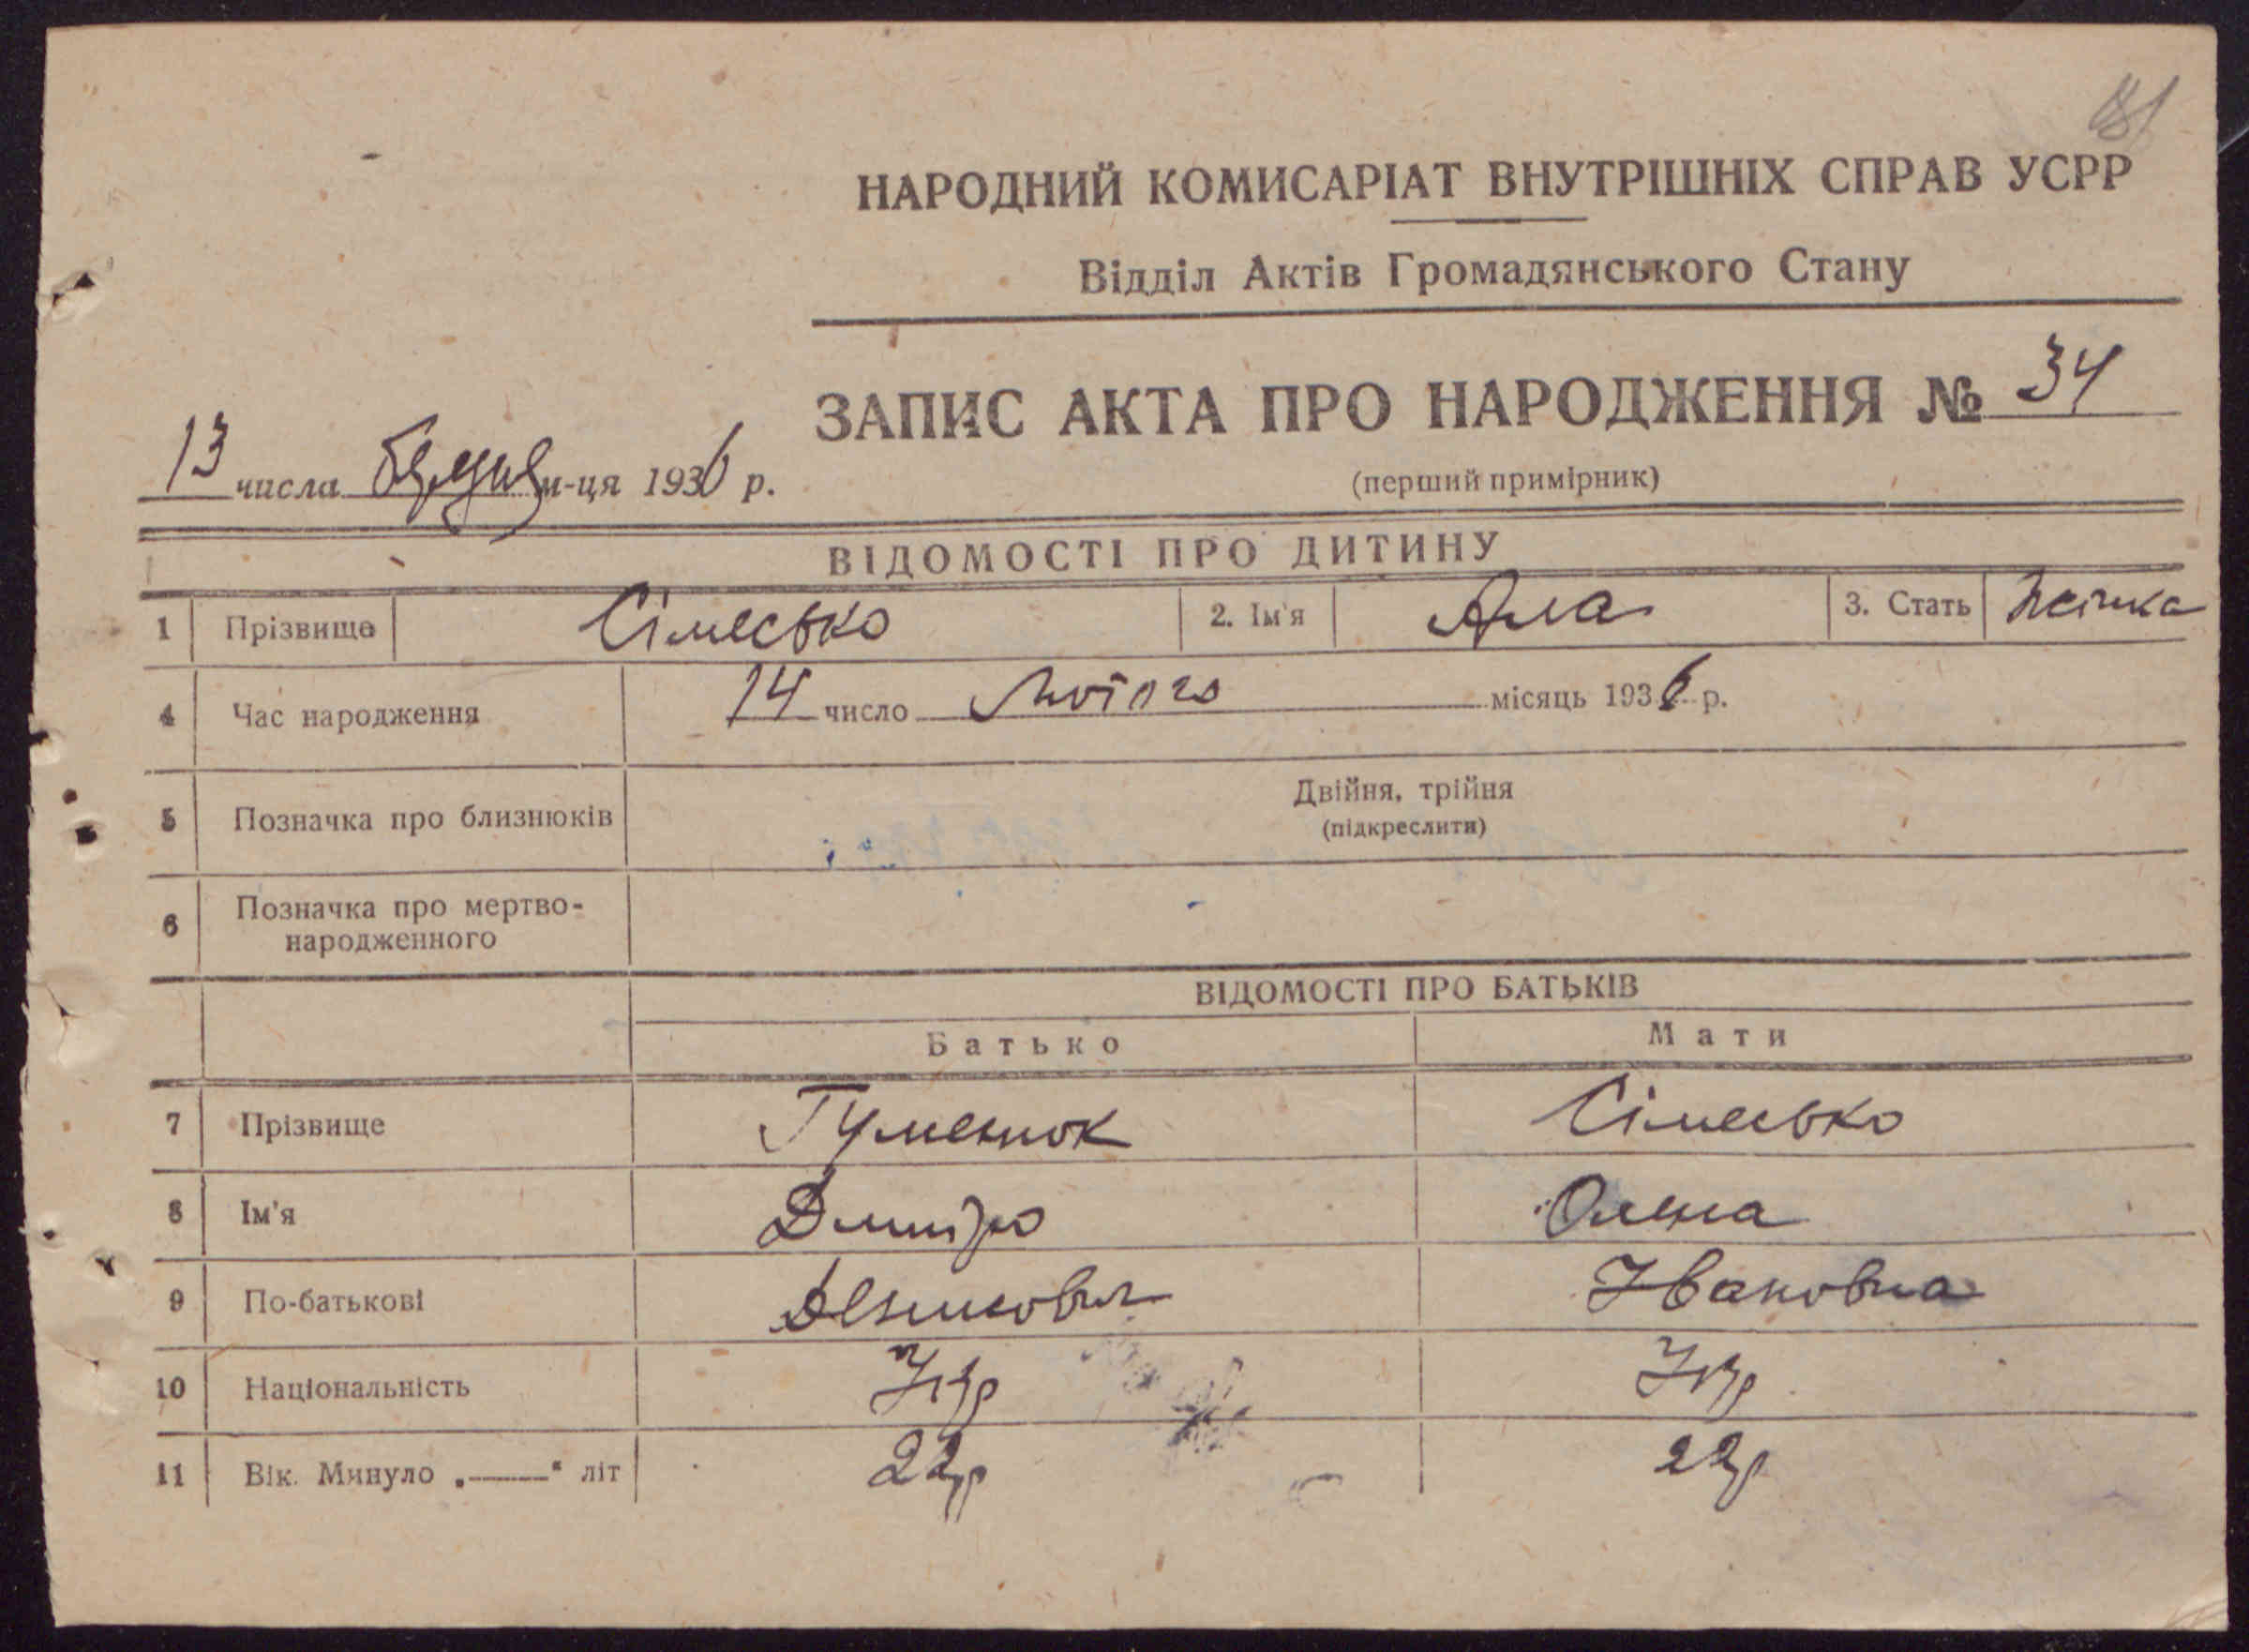 81
НАРОДНИЙ КОМИСАРІАТ ВНУТРІШНІХ СПРАВ УСРР
Відділ Актів Громадянського Стану
ЗАПИС АКТА ПРО НАРОДЖЕННЯ № 34
13 числа м-ця 1936 р.
(перший примірник)
ВІДОМОСТІ ПРО ДИТИНУ
1 Прізвище Сімесько 2. Ім'я Ала 3. Стать жіička
4 Час народження 14 число Лютого місяць 1936 р.
5 Позначка про близнюків Двійня, трійня
(підкреслити)
6 Позначка про мертво-
народженного
ВІДОМОСТІ ПРО БАТЬКІВ
Батько Мати
7 Прізвище Гуменюк Сімесько
8 Ім'я Дмитро Олена
9 По-батькові Івановна
10 Національність Укр Укр
11 Вік. Минуло „——" літ 22р 22р